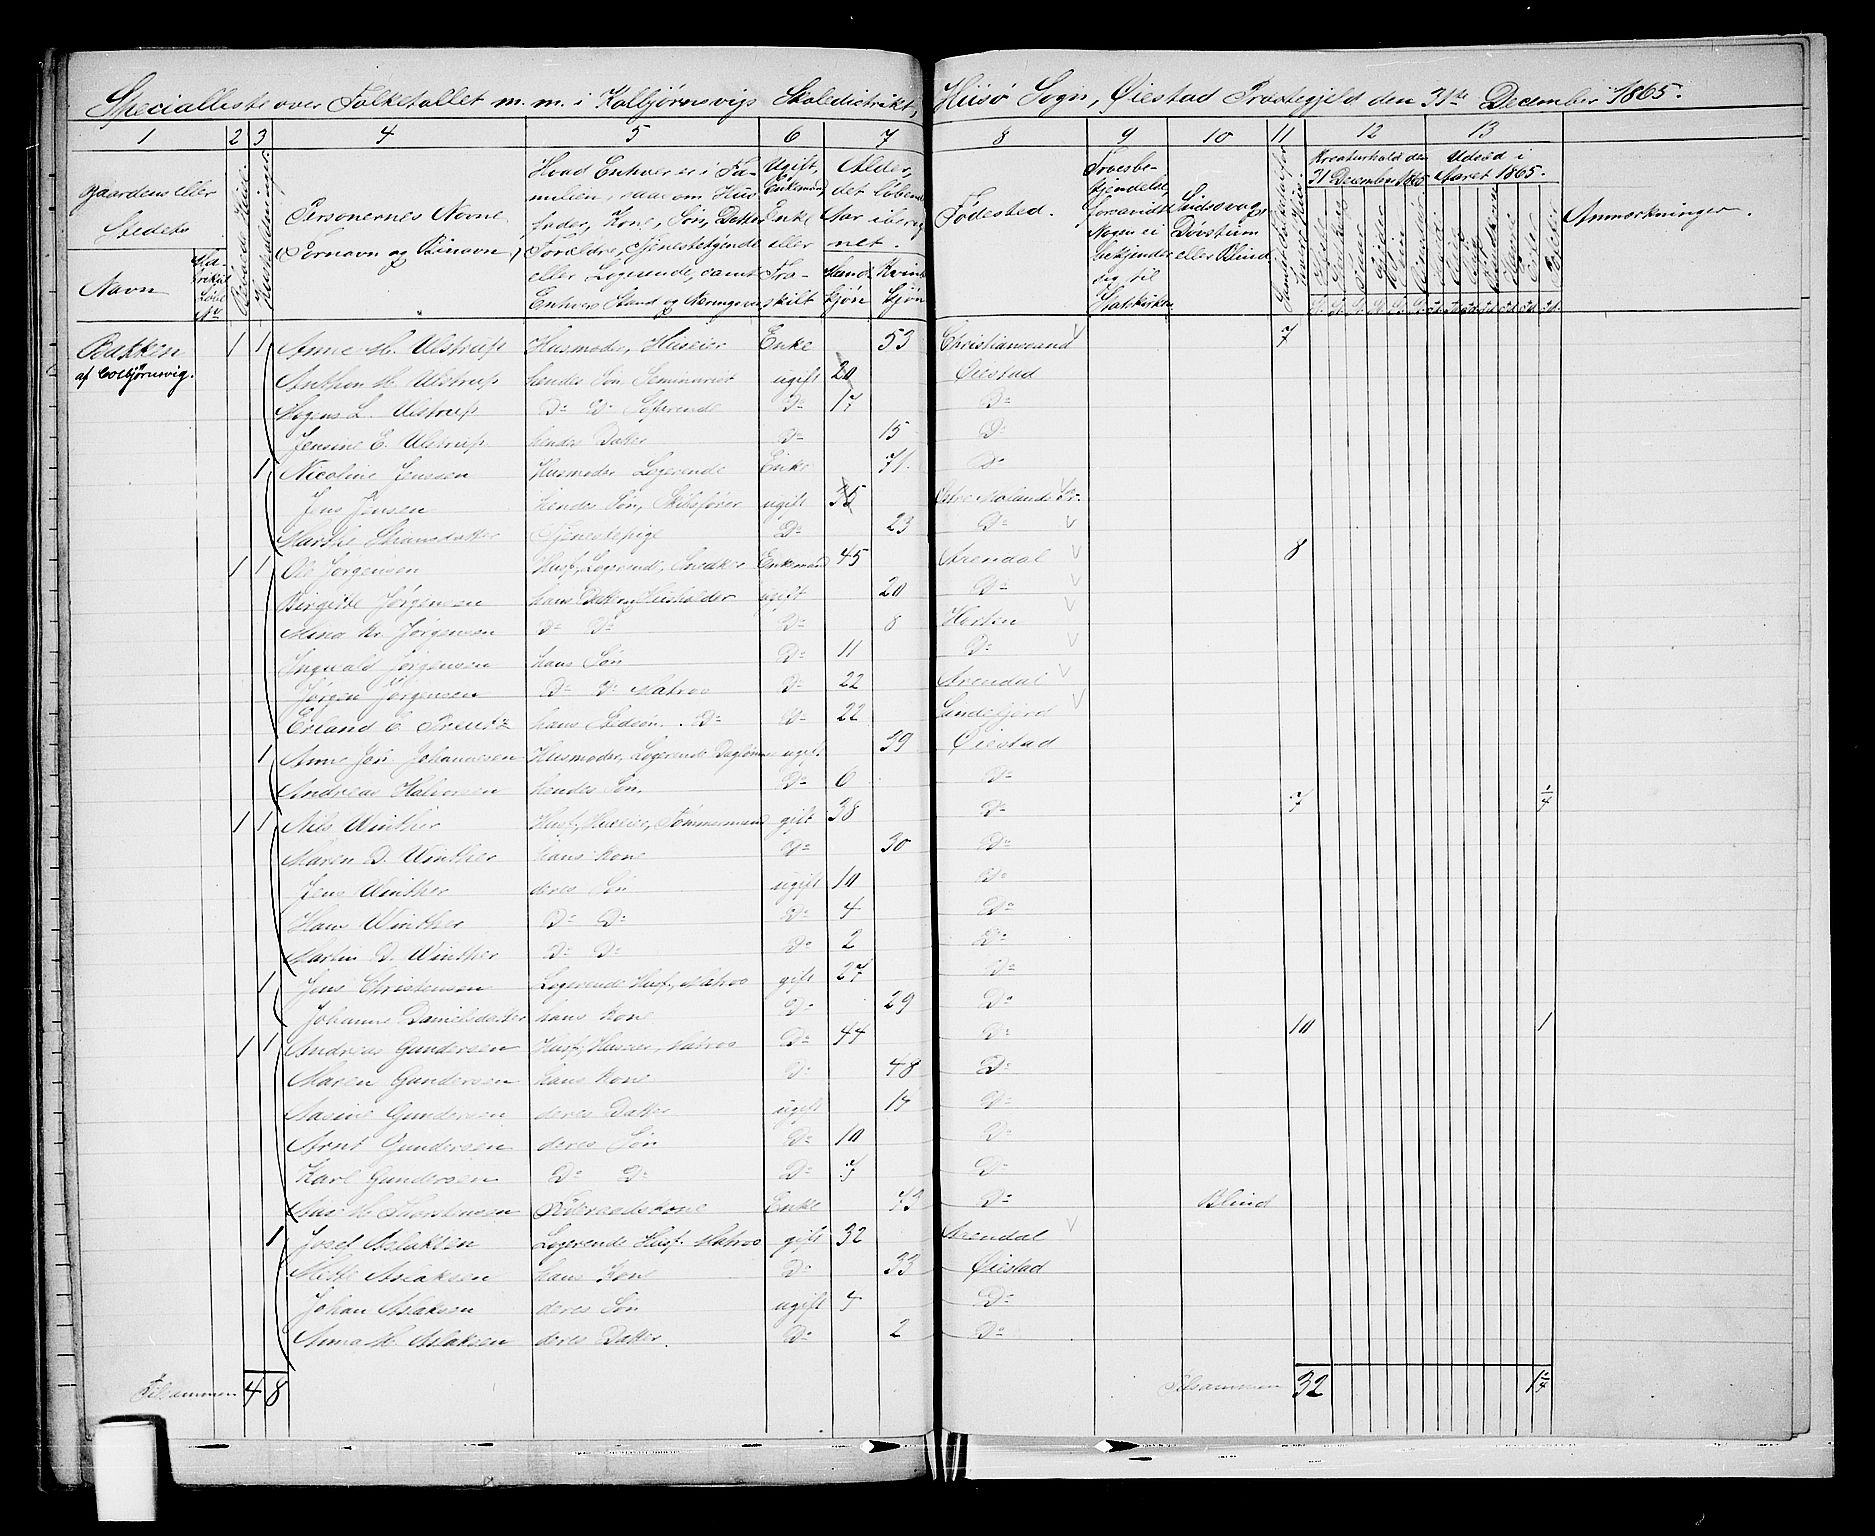 Specialliste over Folketallet m. m. i Kolbjørnsvigs Skoledistrikt, Hiisø Sogn, Øiestad Præstegjeld den 31te December 1865.
1 2 3 4 5 6 7 8 9 10 11 12 13
Gaardens eller Stedets
Navn
Matrikul Løbe No
Beboede Huse.
Huusholdninger.
Personernes Navne
(Fornavn og Tilnavn)
Hvad Enhver er i Familien, saasom Husfader, Kone, Søn, Datter, Forældre, Tjenestetyende eller Logerende, samt Enhvers Stand og Næringsvei
Ugift, gift, Enkemand, Enke eller Fraskilt
Alder, det løbende Aar iberegnet.
Mandkjøn Kvindkjøn
Fødested.
Troesbekjendelse, forsaavidt Nogen ei bekjender sig til Statskirken
Sindssvag, Døvstum eller Blind
Kreaturhold den 31 December 1865
Udsæd i Aaret 1865.
Anmærkninger.
Bakken 1 1 Anne M. Ulstrup Husmoder, Huseier Enke 53 Christianssand 7
af Colbjørnsvig. Anthon M. Ulstrup hendes Søn, Seminarist ugift 20 Øiestad
Mogens L. Ulstrup Do Do Søfarende Do 17 Do
Jensine E. Ulstrup hendes Datter Do 15 Do
1 Nicoline Jenssen Husmoder Logerende Enke 71 Do
Jens Jensen hendes Søn, Skibsfører ugift 35
Marthe Tjenestepige Do 23 Do
1 1 Ole Jørgensen Husf, Logerende, Snedker Enkemand 45 Arendal 8
Birgitte Jørgensen hans Datter, Huusholder ugift 20 Do
Mina Kr. Jørgensen Do Do Do 8 Horten
Ingvald Jørgensen hans Søn Do 11 Do
Jørgen Jørgensen Do Do Matros Do 22 Arendal
Erland E. hans Stedsøn. Do Do 22 Sandefjord
1 Anne Jon. Johannesen Husmoder, Logerende ugift 39 Øiestad
Andreas Halvorsen hendes Søn Do 6 Do
1 1 Nils Winther Husf, Huseier, Tømmermand gift 38 Do 7 1/4
Maren D. Winther hans Kone Do 30 Do
Jens Winther deres Søn ugift 10 Do
Hans Winther Do Do Do 4 Do
Martin D. Winther Do Do Do 2 Do
1 Jens Christensen Logerende Husf, Matros gift 27 Do
Johanne Danielsdatter hans Kone Do 29 Do
1 1 Andreas Gundersen Husf, Huseier, Matros Do 44 Do 10 1
Maren Gundersen hans Kone Do 48 Do
Gundersen deres Datter ugift 14 Do
Arnt Gundersen deres Søn Do 10 Do
Karl Gundersen Do Do Do 7 Do
Føderaadskone Enke 73 Do Blind
1 Josef Aslaksen Logerende Husf. Matros gift 32 Arendal
Mette Aslaksen hans Kone Do 33 Øiestad
Johan Aslaksen deres Søn ugift 4 Do
Anna M. Aslaksen deres Datter. Do 2 Do
Tilsammen 4 8 Tilsammen 32 1 1/4